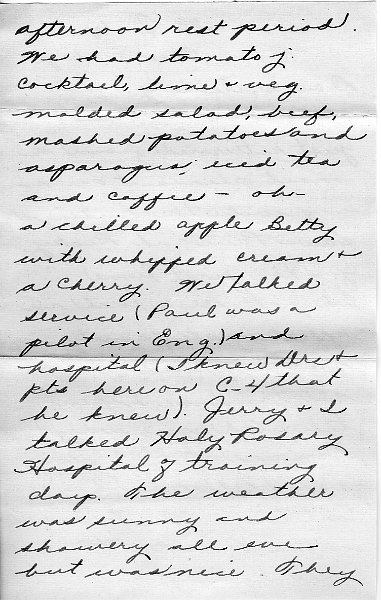 afternoon rest period.
We had tomato j.
cocktail, lime + veg.
molded salad, beef,
mashed potatoes and
asparagus, iced tea
and coffee – oh –
a chilled apple Betty
with whipped cream +
a cherry. We talked
service (Paul was a
pilot in Eng.) and
hospital (I knew Drs +
pts here on C-4 that
he knew). Jerry + I
talked Holy Rosary
Hospital & training
days. The weather
was sunny and
showery all eve
but was nice. They